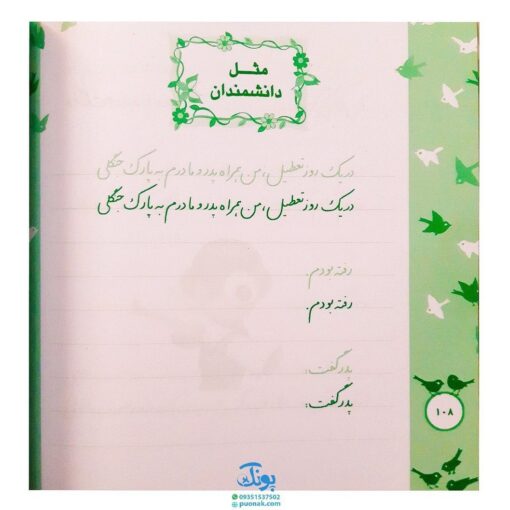 مثل
دانشمندان
در یک روز تعطیل، من همراه پدر و مادرم به پارک جنگلی
در یک روز تعطیل، من همراه پدر و مادرم به پارک جنگلی
رفته بودم.
رفته بودم.
پدر گفت:
پدر گفت:
۱۰۸
پونک
09351537502
puonak.com